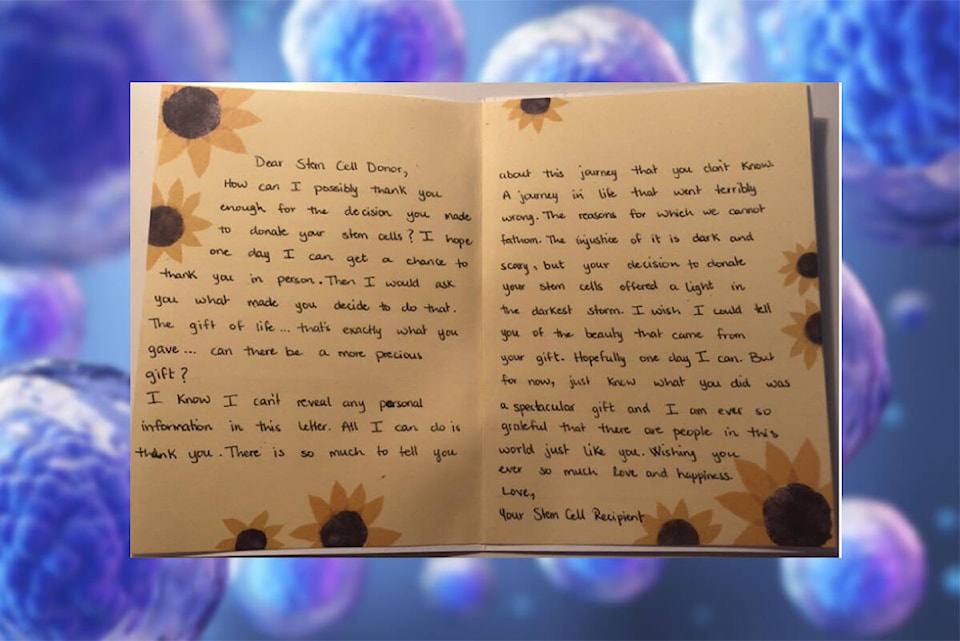 Dear Stem Cell Donor,
How can I possibly thank you
enough for the decision you made
to donate your stem cells? I hope
one day I can get a chance to
thank you in person. Then I would ask
you what made you decide to do that.
The gift of life... that's exactly what you
gave... can there be a more precious
gift?
I know I can't reveal any personal
information in this letter. All I can do is
thank you. There is so much to tell you
about this journey that you don't know.
A journey in life that went terribly
wrong. The reasons for which we cannot
fathom. The injustice of it is dark and
scary, but your decision to donate
your stem cells offered a light in
the darkest storm. I wish I could tell
you of the beauty that came from
your gift. Hopefully one day I can. But
for now, just know what you did was
a spectacular gift and I am ever so
grateful that there are people in this
world just like you. Wishing you
ever so much love and happiness.
Love,
Your Stem Cell Recipient